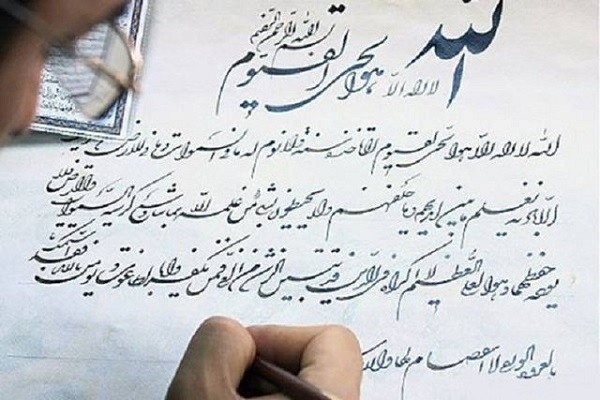 بسم الله الرحمن الرحیم
الله لا اله الا هو الحی القیوم
الله لا اله الا هو الحی القیوم لا تاخذه سنة و لا نوم له ما فی السموات و ما فی الارض
الا باذنه یعلم ما بین ایدیهم و ما خلفهم و لا یحیطون بشیء من علمه الا بما شاء وسع کرسیه السموات والارض ولا
یوده حفظهما و هو العلی العظیم لا اکراه فی الدین قد تبین الرشد من الغی فمن یکفر بالطاغوت و یومن بالله فقد استمسک
بالعروة الوثقی لا انفصام لها والله